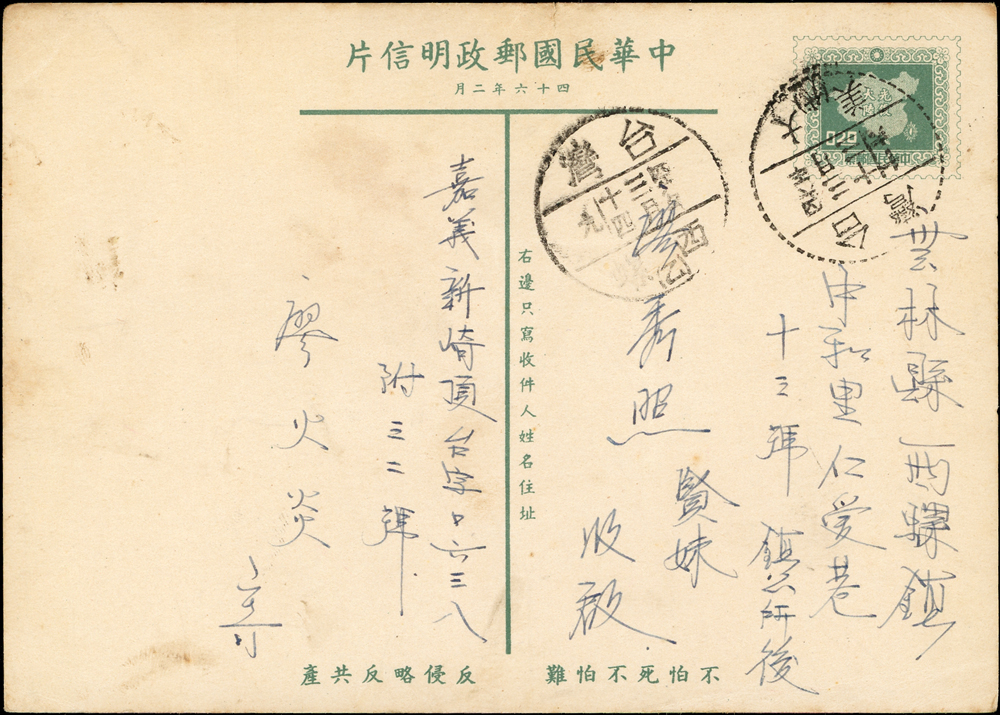 中華民國郵政明信片
四十六年二月
雲林縣西螺鎮
中和里仁愛巷
十三號 鎮公所後
廖秀照 賢妹
收啟
右邊只寫收件人姓名住址
嘉義新崎頂台字口六三八
附三二號
廖火炎
寄
不怕死不怕難
反侵略反共產
台灣
西
台灣
大
美
0.20
中華民國郵票